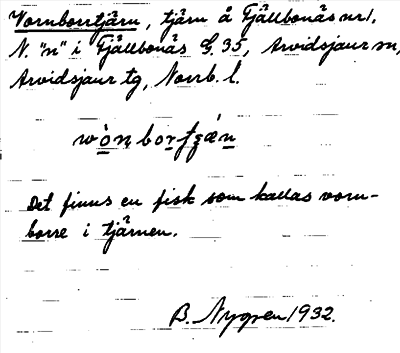 Vornborrtjärn, tjärn å Fjällbonäs nr 1,
N. "n" i Fjällbonäs G. 35, Arvidsjaur sn,
Arvidsjaur tg, Norrb. l.
Det finns en fisk som kallas vorn-
borre i tjärnen.
B. Nygren 1932.